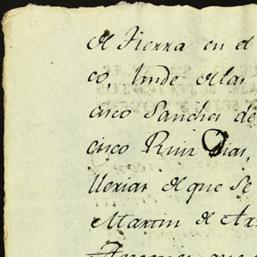 de Tierra en el
co, linde de las
cisco Sanchez de
cisco Ruiz Dias,
llerias de que se
Martin de Ar